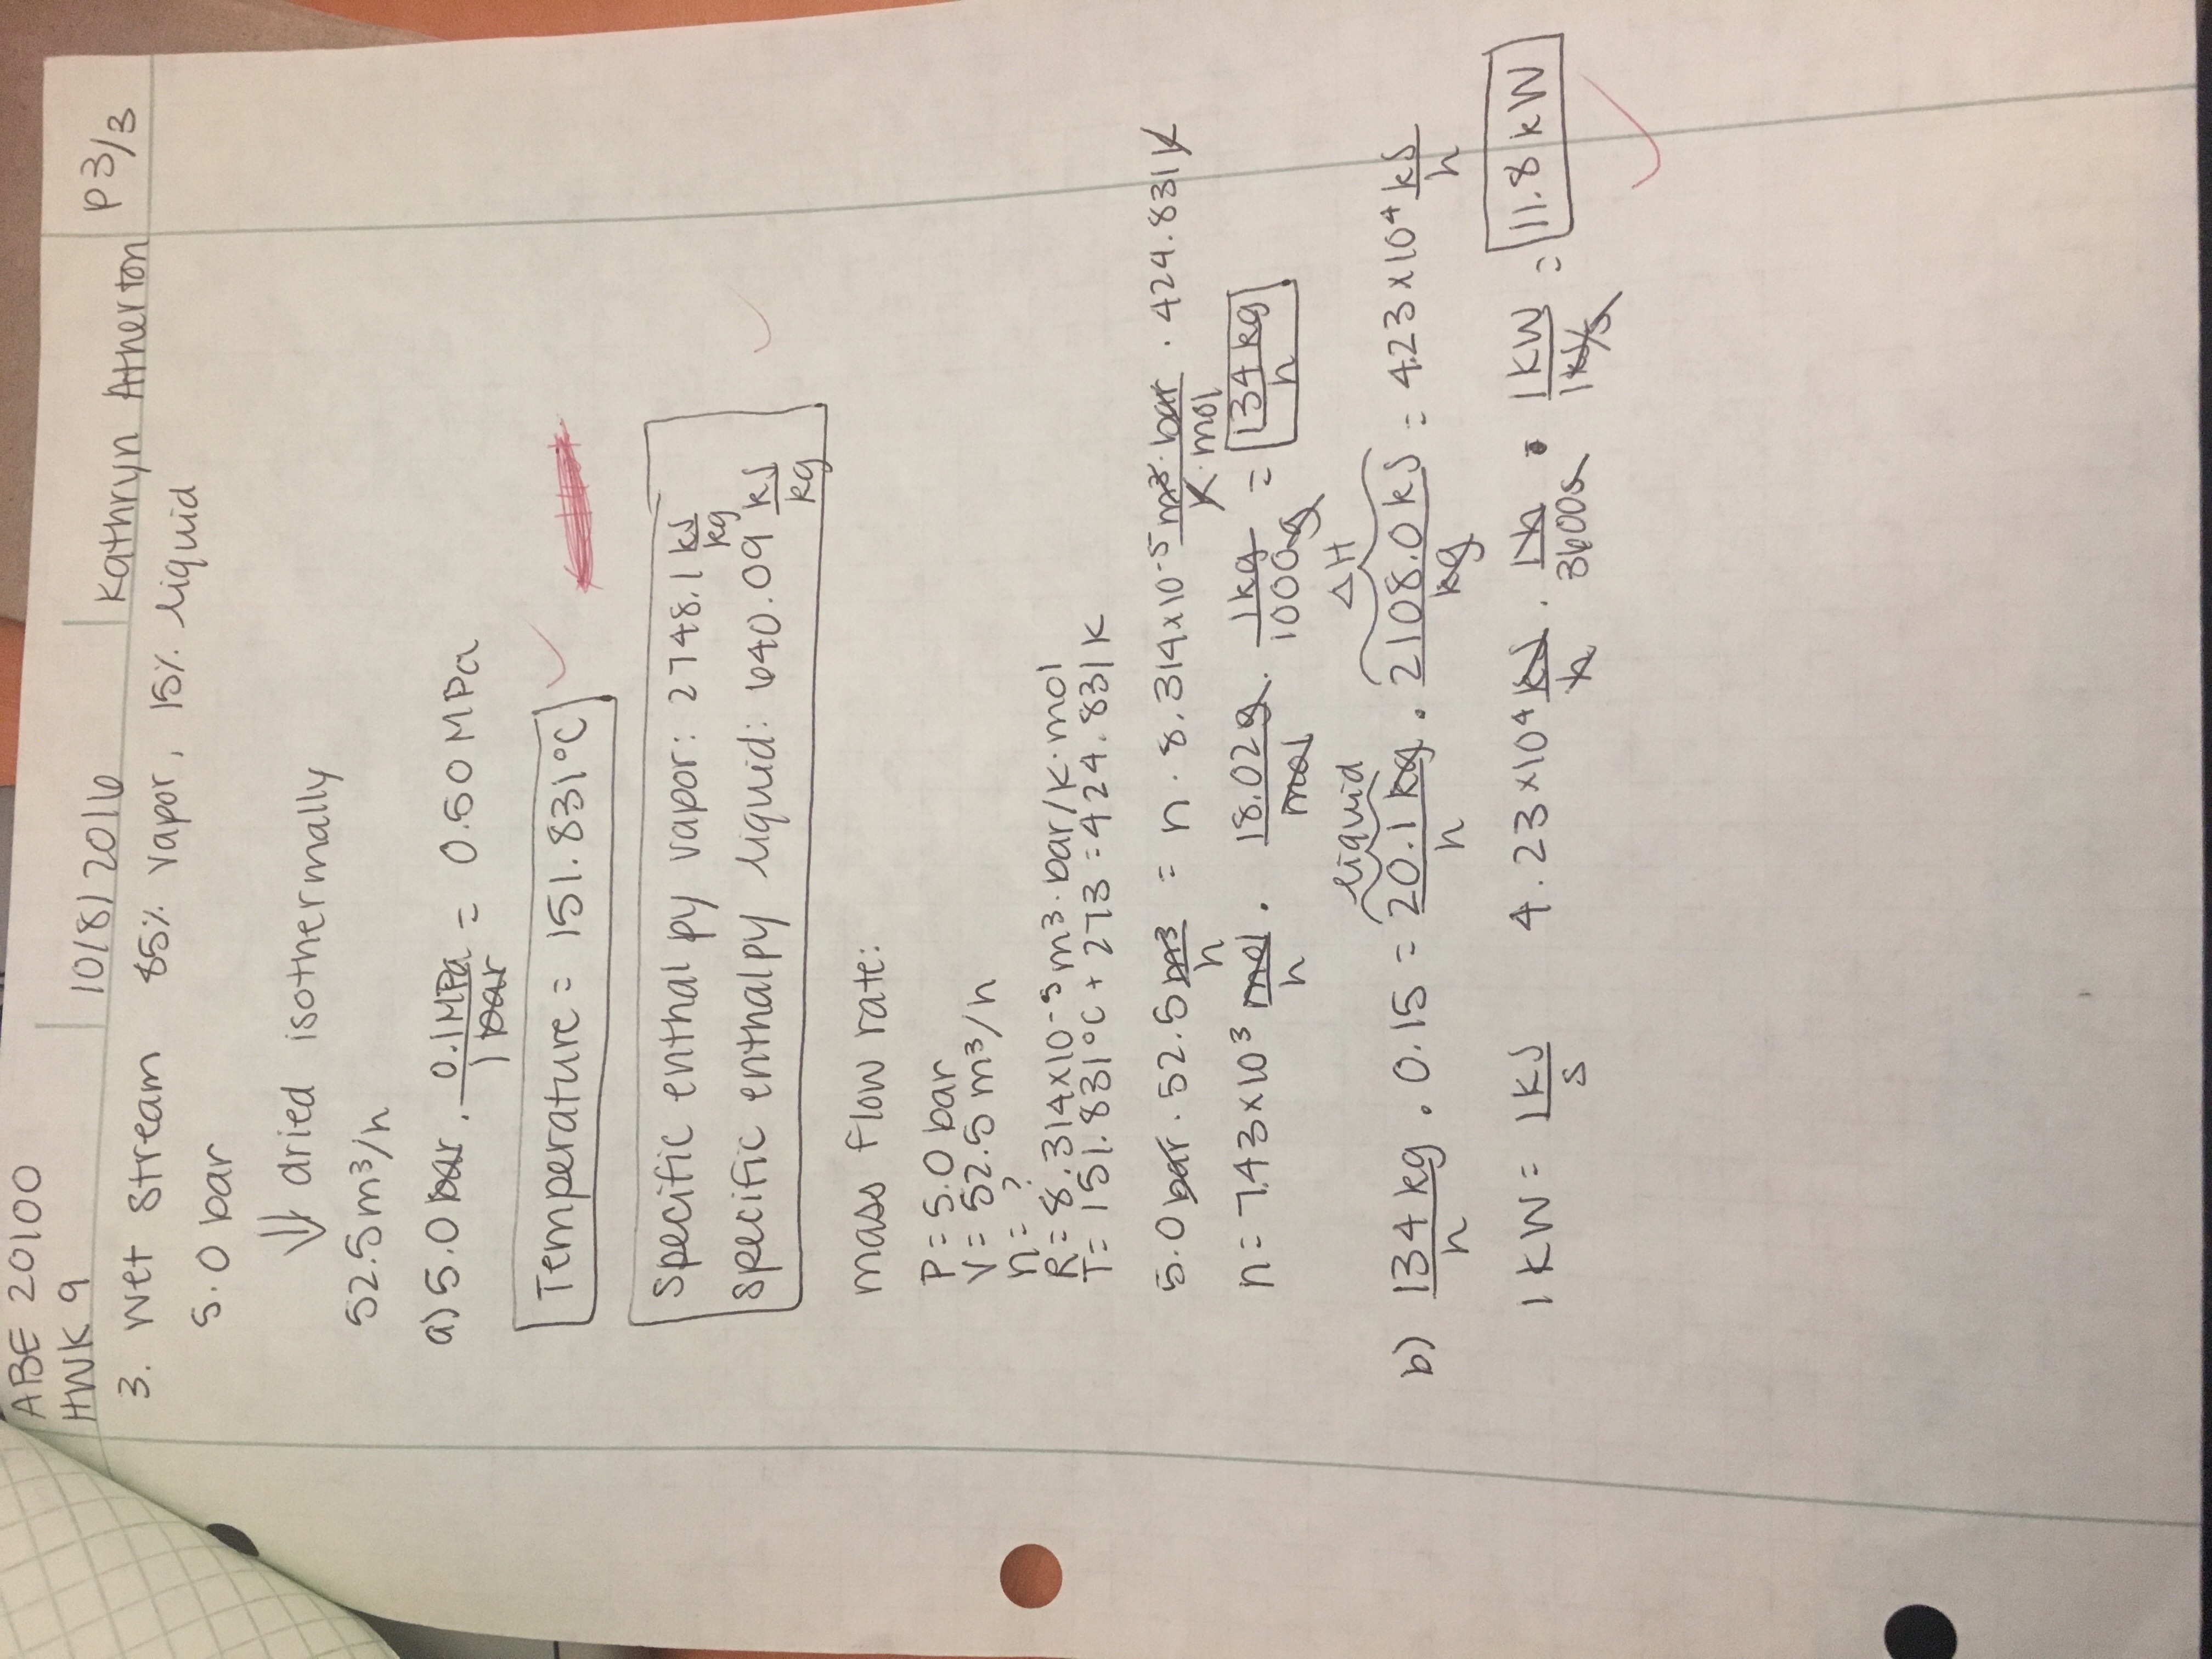 ABE 20100
HWK 9
10/8/2016
Kathryn Atherton
P 3/3
3. Wet stream 85% vapor, 15% liquid
5.0 bar
⇓ dried isothermally
52.5 m³/h
a) 5.0 bar · 0.1 MPa / 1 bar = 0.50 MPa
Temperature = 151.831°C ✓
specific enthalpy vapor: 2748.1 kJ/kg
specific enthalpy liquid: 640.09 kJ/kg ✓
mass flow rate:
P = 5.0 bar
V = 52.5 m³/h
n = ?
R = 8.314x10⁻⁵ m³·bar/K·mol
T = 151.831°C + 273 = 424.831 K
5.0 bar · 52.5 m³/h = n · 8.314x10⁻⁵ m³·bar/K·mol · 424.831 K
n = 7.43x10³ mol/h · 18.02g/mol · 1kg/1000g = 134 kg/h
liquid ΔH
b) 134 kg/h · 0.15 = 20.1 kg/h · 2108.0 kJ/kg = 4.23x10⁴ kJ/h
1 kW = 1 kJ/s 4.23x10⁴ kJ/h · 1h/3600s · 1 kW/1 kJ/s = 11.8 kW ✓